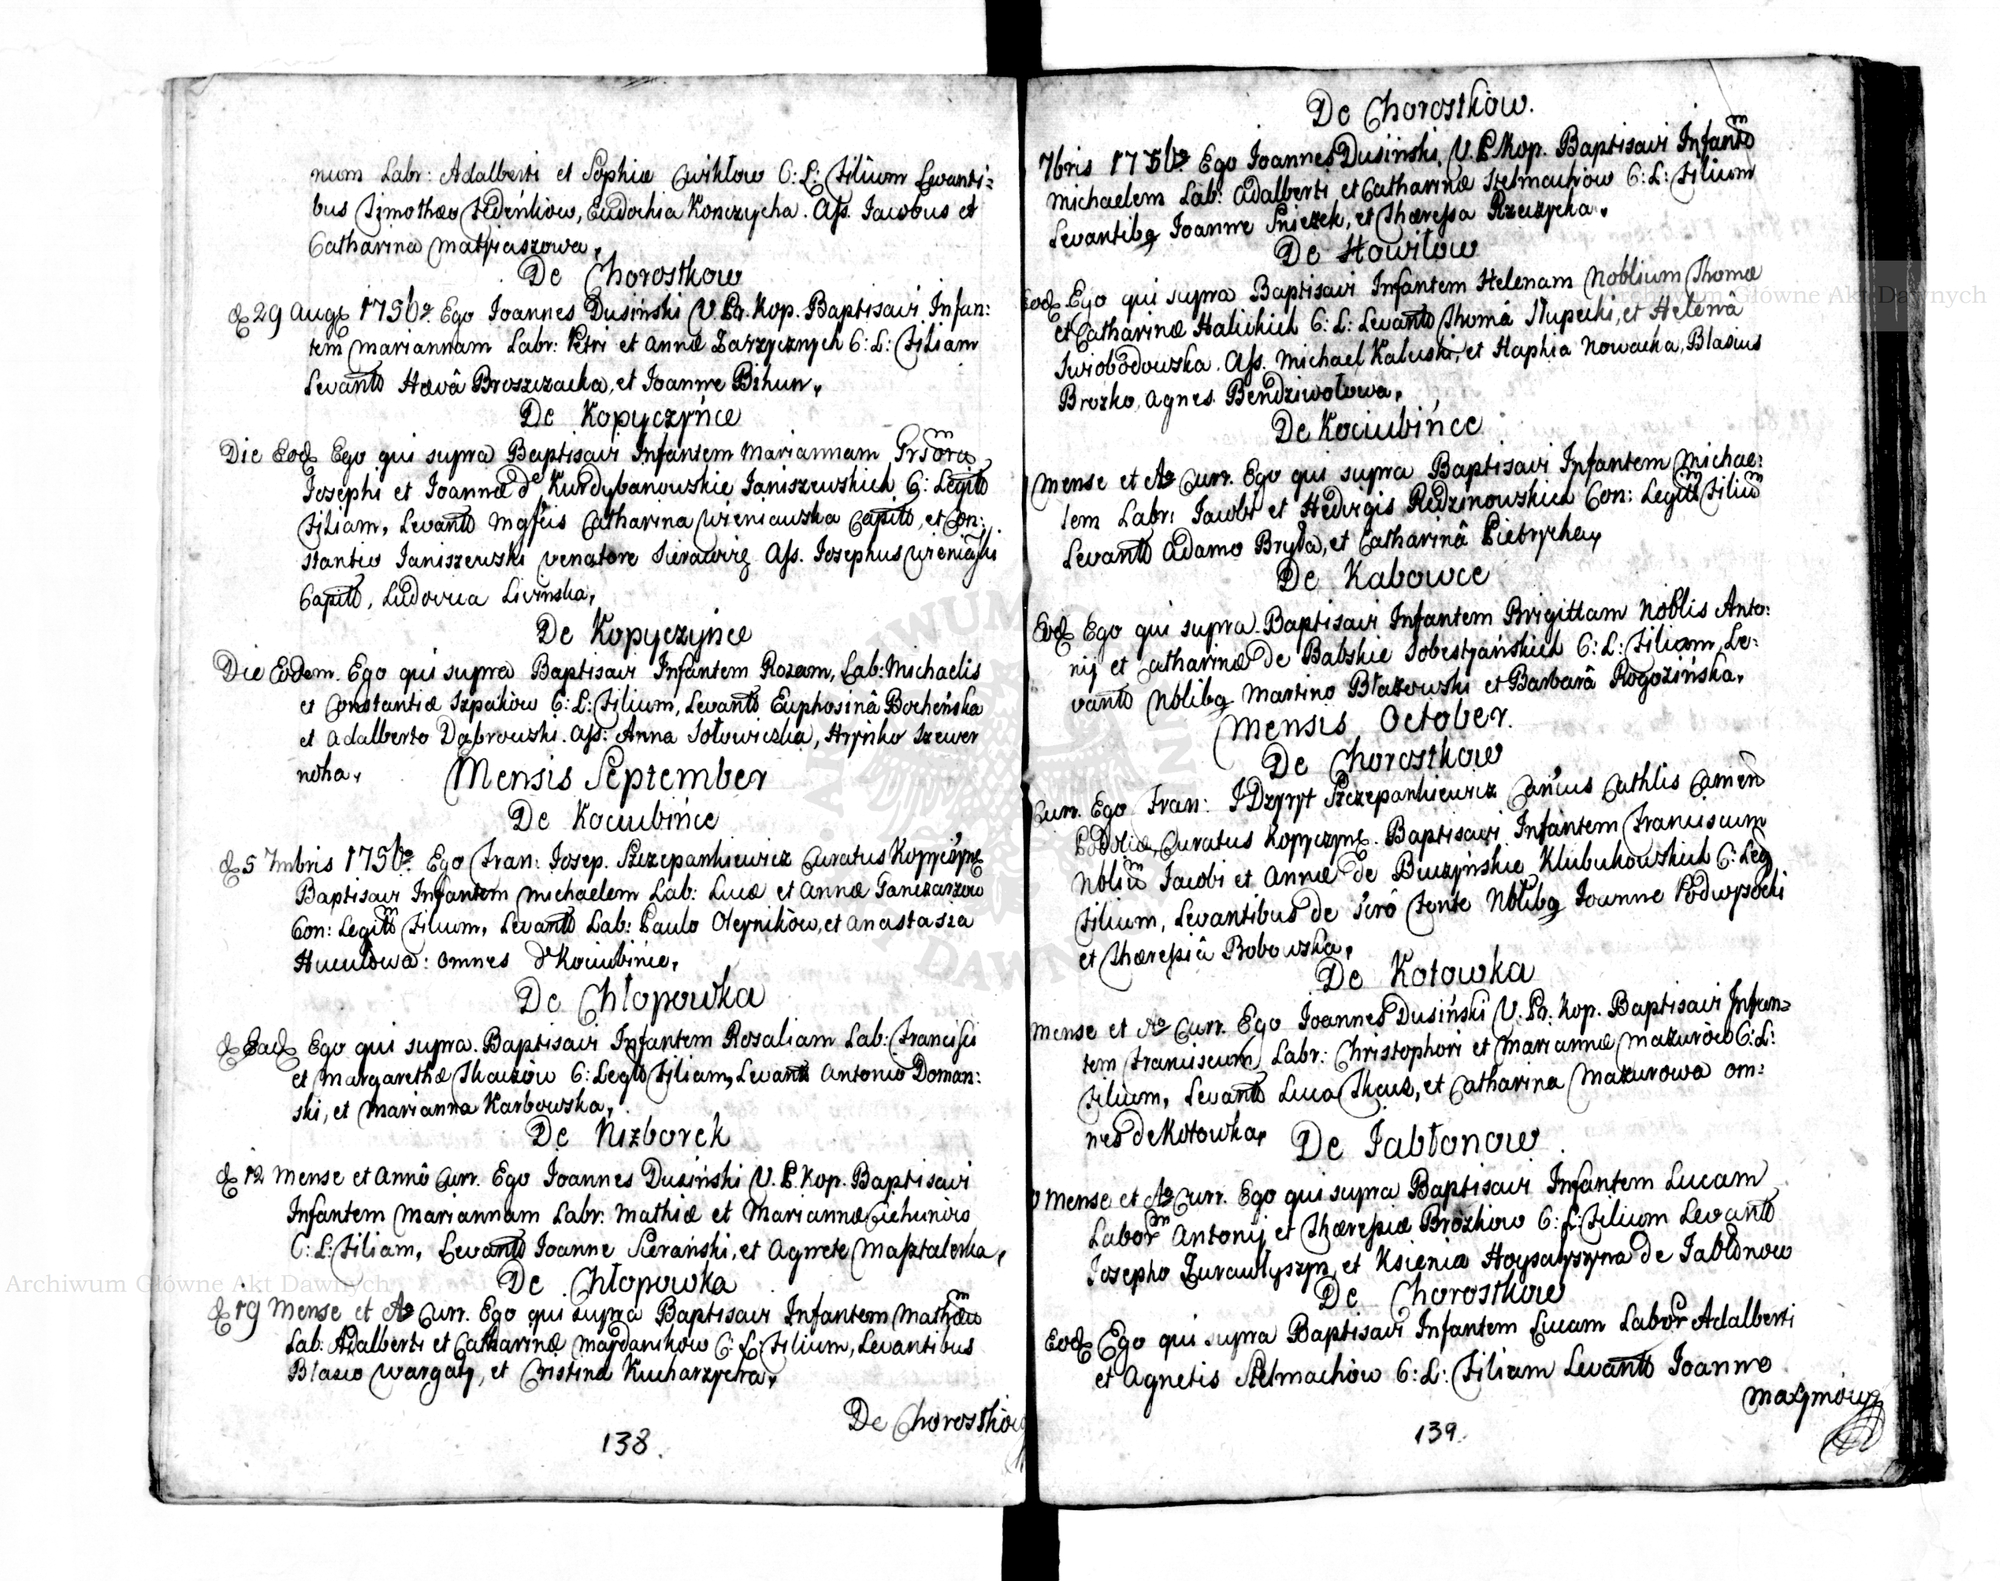 num Labr: Adalberti et Sophiæ Cwikłow C: L: Filium Levanti=
bus Timotheo Fedeńkow, Eudochia Konczycha. Ass. Iacobus et
Catharina Matyiaszowa.
De Chorostkow
d 29 Aug 1756o. Ego Ioannes Dusiński V. Pr. Kop. Baptisavi Infan:
tem Mariannam Labr: Petri et Annæ Zarzycznych C: L: Filiam
Levantb Hævâ Broszczacka, et Ioanne Bihun.
De Kopyczyńce
Die Eod Ego qui supra Baptisavi Infantem Mariannam
Iosephi et Ioannæ de Kurdybanowskie Ianiszewskich C: Legitb
Filiam, Levantb Mgfcis Catharina Wieniawska Capitb, et Con:
stantio Ianiszewski Venatore Ass. Iosephus
Capitb, Ludovica Livinska.
De Kopyczyńce
Die Eodem. Ego qui supra Baptisavi Infantem Rozam, Lab: Michaelis
et Constantiæ Szpaków C: L: Filium, Levantb Euphosinâ Bocheńska
et Adalberto Dąbrowski. Ass: Anna Sołowiczka, Hryńko Szewer
noha.
Mensis September
De Kociubińce
d 5 7mbris 1756o. Ego Fran: Iosep. Szczepankiewicz Curatus Kopyczyn
Baptisavi Infantem Michaelem Lab: Lucæ et Annæ Ganczarzow
Con: Legitm Filium, Levantb Lab: Paulo Oleyników, et Anastasia
Huculowa: omnes d Kociubińce.
De Chłopowka
d Ead Ego qui supra. Baptisavi Infantem Rosaliam Lab: Francisci
et Margarethæ Tkaczów C: Legtb Filiam, Levantb Antonio Doman:
ski, et Marianna Karbowska.
De Nizborek
d 12 Mense et Annô Curr. Ego Ioannes Dusiński V. P. Kop. Baptisavi
Infantem Mariannam Labr: Mathiæ et Mariannæ Cichuniów
C: L: Filiam, Levantb Ioanne Sierański, et Agnete Masztalerka.
De Chłopowka
d 19 Mense et Ao Curr. Ego qui supra Baptisavi Infantem Mathæum
Lab: Adalberti et Catharinæ Maydanikow C: L: Filium, Levantibus
Blasio Wargaty, et Cristina Kucharzycha.
De Chorostków
138.
De Chorostkow.
7bris 1756o Ego Ioannes Dusiński, V. P. Kop. Baptisavi Infantm
Michaelem Lab: Adalberti et Catharinæ Stelmachiów C: L: Filium
Levantibq Ioanne Sniezek, et Thæressa Rzeczycka.
De Howiłow
Eod Ego qui supra Baptisavi Infantem Helenam Noblium Thomæ
et Catharinæ Halickich C: L: Levantb Thomâ Słupecki, et Helenâ
Swiobodowska. Ass. Michael Kaluski, et Haphia Nowacka, Blasius
Brozko, Agnes Bendziwołowa.
De Kociubińce
Mense et Ao Curr. Ego qui supra Baptisavi Infantem Michae:
lem Labr: Iacobi et Hedvigis Redzinowskich Con: Legitm Filium
Levantb Adamo Bryda, et Catharinâ Pietrycha.
De Kabowce
Eod Ego qui supra. Baptisavi Infantem Brigittam Noblis Anto:
nij et Catharinæ de Babskie Sobestyańskich C: L: Filiam, Le:
vantb Noblibq Martino Błazowski et Barbarâ Rogozińska.
Mensis October.
De Chorostkow
Curr. Ego Fran: I Dzyryt Szczepankiewicz Can̄cus Cathlis Camen
Podoliæ, Curatus Kopyczyn. Baptisavi Infantem Franciscum
Nblium Iacobi et Annæ de Buczyńskie Klubukowskich C: Leg
Filium, Levantibus de Scrô Fonte Nblibq Ioanne Podwysocki
et Thæressiâ Bobowska.
De Kotowka
Mense et Ao Curr. Ego Ioannes Dusiński V. Pr. Kop. Baptisavi Infan=
tem Franciscum, Labr: Christophori et Mariannæ Mazurów C: L:
Filium, Levantb Luca Tkacz, et Catharina Mazurowa om:
nes de Kotowka.
De Iabłonow
Mense et Ao Curr. Ego qui supra Baptisavi Infantem Lucam
Laborm Antonij et Thæressiæ Brozkow C: L: Filium Levantb
Iosepho Zurawłyszyn, et Ksienia Hoysałyszyna de Iabłonow
De Chorostkow
Eod Ego qui supra Baptisavi Infantem Lucam Labor Adalberti
et Agnetis Stelmachów C: L: Filiam Levantb Ioanno
Maxymow
139.
Archiwum Główne Akt Dawnych
Archiwum Główne Akt Dawnych